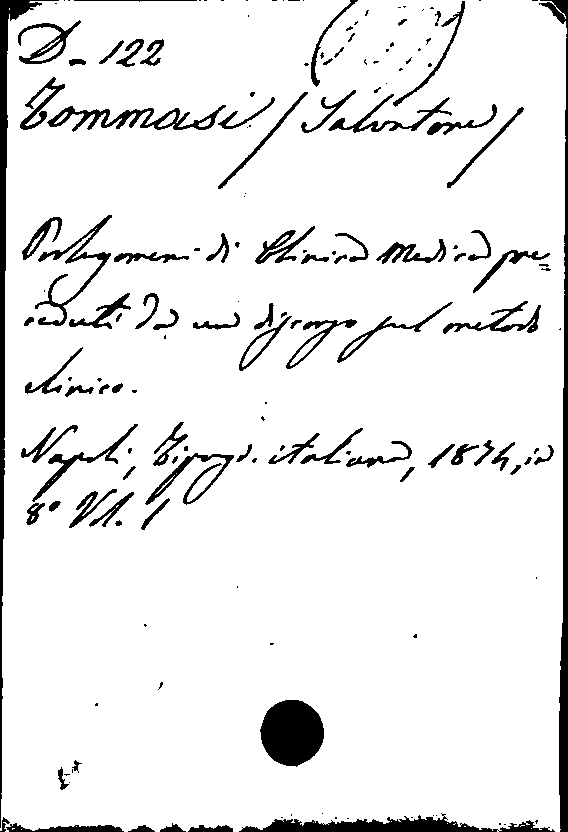 D - 122
Tommasi / Salvatore /
Prolegomeni di Clinica Medica pre=
ceduti da un discorso sul metodo
clinico.
Napoli, Tipogr. italiana, 1874, in
8° Vol. 1